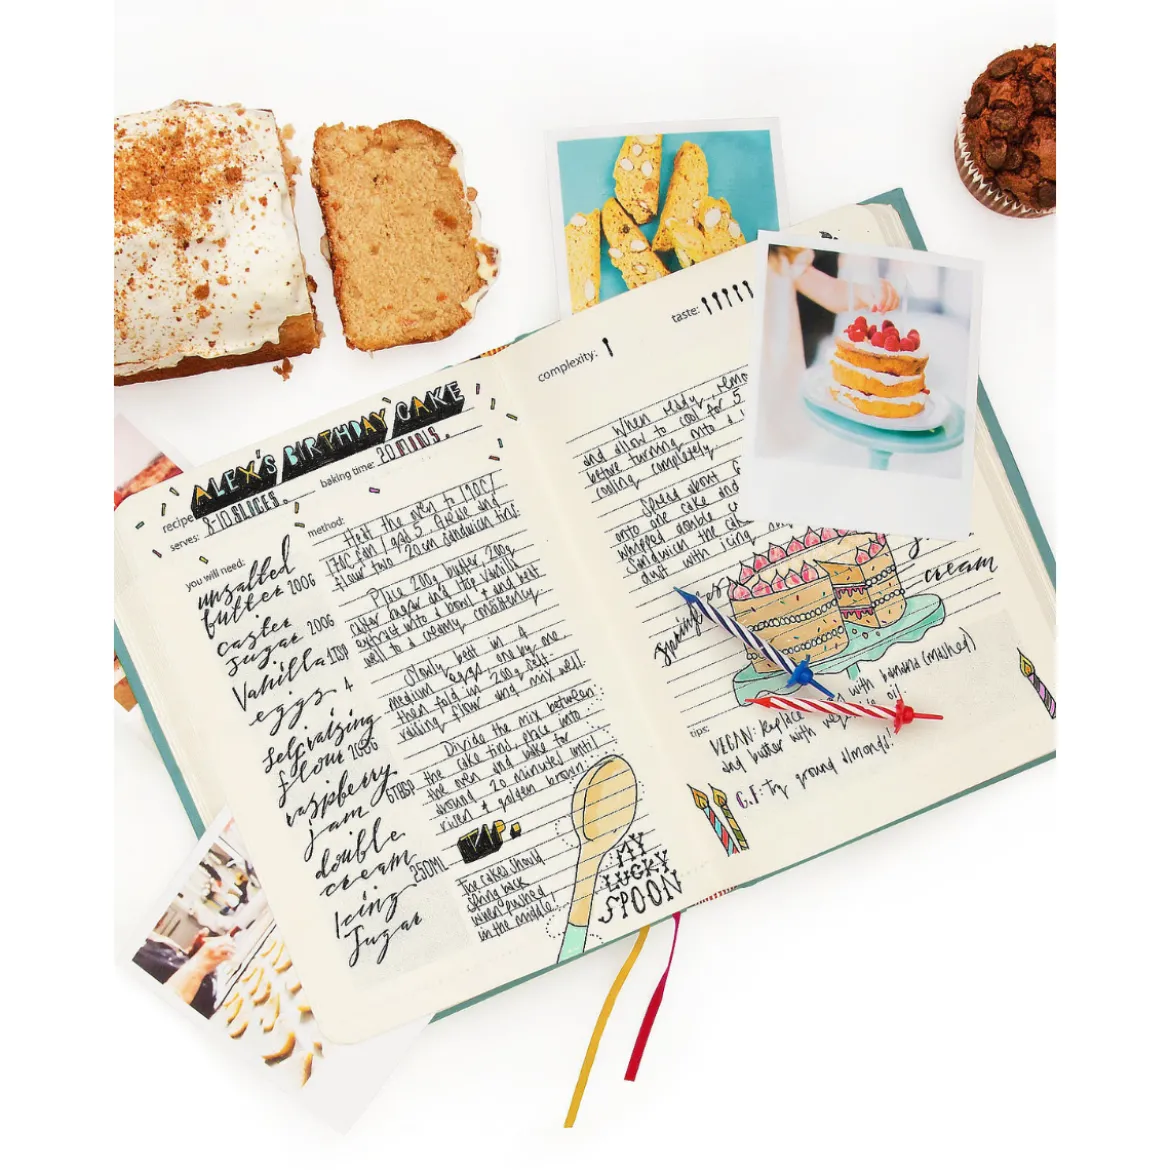 recipe
ALEX'S BIRTHDAY CAKE
serves: 8-10 SLICES.
baking time: 20 MINS.
you will need:
unsalted
butter 200G
caster
sugar 200G
Vanilla 1TSP
eggs, 4
self-raising
flour 200G
raspberry
jam 6TBSP
double
cream 250ML
Icing
Sugar
method:
Heat the oven to 190C/
170C fan / gas 5. Grease and
flour two 20cm sandwich tins
Place 200g butter, 200g
caster sugar and 1tsp vanilla
extract into a bowl + and beat
well to a creamy consistency
Slowly beat in 4
medium eggs one by one
then fold in 200g self-
raising flour and mix well.
Divide the mix between
the cake tins, place into
the oven and bake for
around 20 minutes until
risen + golden brown.
TIP:
The cakes should
spring back
when pushed
in the middle!
MY
LUCKY
SPOON
complexity:
taste:
When ready, remo
and allow to cool for 5
before turning into a
cooling completely.
Spread about 6
onto one cake and
whipped double c
Sandwich the cak
dust with icing
cream
tips:
VEGAN: Replace with banana (mashed)
and butter with oil.
G.F: Try ground almonds!